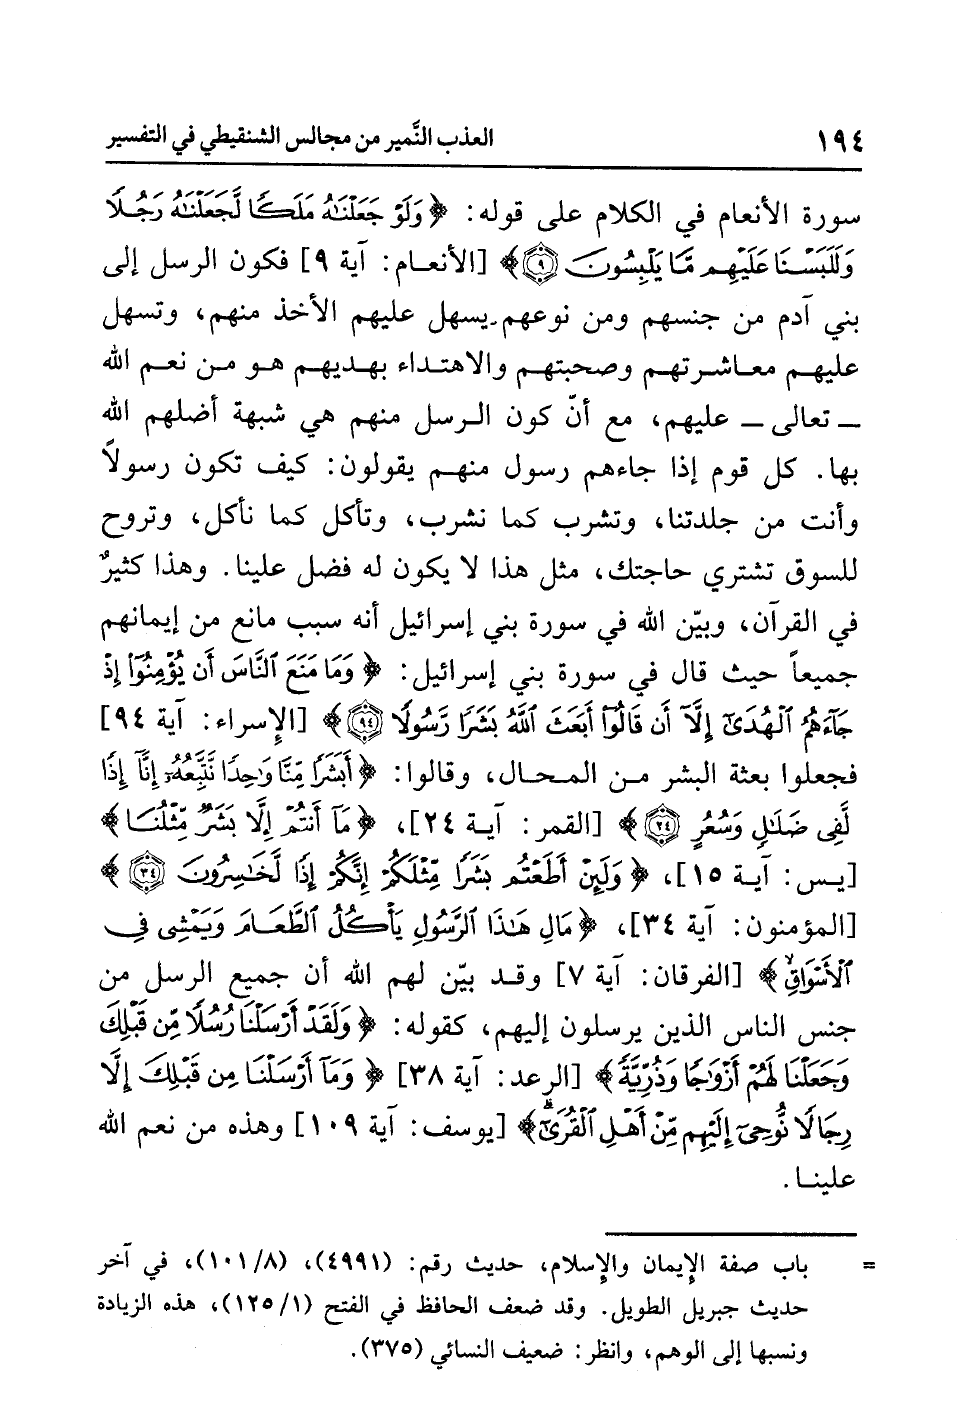 ١٩٤ العذب النَّمير من مجالس الشنقيطي في التفسير
سورة الأنعام في الكلام على قوله: ﴿وَلَوْ جَعَلْنَٰهُ مَلَكًا لَّجَعَلْنَٰهُ رَجُلًا
وَلَلَبَسْنَا عَلَيْهِم مَّا يَلْبِسُونَ ٩﴾ [الأنعام: آية ٩] فكون الرسل إلى
بني آدم من جنسهم ومن نوعهم يسهل عليهم الأخذ منهم، وتسهل
عليهم معاشرتهم وصحبتهم والاهتداء بهديهم هو من نعم الله
ــ تعالى ــ عليهم، مع أنّ كون الرسل منهم هي شبهة أضلهم الله
بها. كل قوم إذا جاءهم رسول منهم يقولون: كيف تكون رسولاً
وأنت من جلدتنا، وتشرب كما نشرب، وتأكل كما نأكل، وتروح
للسوق تشتري حاجتك، مثل هذا لا يكون له فضل علينا. وهذا كثيرٌ
في القرآن، وبيّن الله في سورة بني إسرائيل أنه سبب مانع من إيمانهم
جميعاً حيث قال في سورة بني إسرائيل: ﴿وَمَا مَنَعَ ٱلنَّاسَ أَن يُؤْمِنُوٓا۟ إِذْ
جَآءَهُمُ ٱلْهُدَىٰٓ إِلَّآ أَن قَالُوٓا۟ أَبَعَثَ ٱللَّهُ بَشَرًا رَّسُولًا ٩٤﴾ [الإسراء: آية ٩٤]
فجعلوا بعثة البشر من المحال، وقالوا: ﴿أَبَشَرًا مِّنَّا وَٰحِدًا نَّتَّبِعُهُۥٓ إِنَّآ إِذًا
لَّفِى ضَلَٰلٍ وَسُعُرٍ ٢٤﴾ [القمر: آية ٢٤]، ﴿مَآ أَنتُمْ إِلَّا بَشَرٌ مِّثْلُنَا﴾
[يس: آية ١٥]، ﴿وَلَئِنْ أَطَعْتُم بَشَرًا مِّثْلَكُمْ إِنَّكُمْ إِذًا لَّخَٰسِرُونَ ٣٤﴾
[المؤمنون: آية ٣٤]، ﴿مَالِ هَٰذَا ٱلرَّسُولِ يَأْكُلُ ٱلطَّعَامَ وَيَمْشِى فِى
ٱلْأَسْوَاقِ﴾ [الفرقان: آية ٧] وقد بيّن لهم الله أن جميع الرسل من
جنس الناس الذين يرسلون إليهم، كقوله: ﴿وَلَقَدْ أَرْسَلْنَا رُسُلًا مِّن قَبْلِكَ
وَجَعَلْنَا لَهُمْ أَزْوَٰجًا وَذُرِّيَّةً﴾ [الرعد: آية ٣٨] ﴿وَمَآ أَرْسَلْنَا مِن قَبْلِكَ إِلَّا
رِجَالًا نُّوحِىٓ إِلَيْهِم مِّنْ أَهْلِ ٱلْقُرَىٰٓ﴾ [يوسف: آية ١٠٩] وهذه من نعم الله
علينا.
= باب صفة الإيمان والإسلام، حديث رقم: (٤٩٩١)، (١٠١/٨)، في آخر
حديث جبريل الطويل. وقد ضعف الحافظ في الفتح (١٢٥/١)، هذه الزيادة
ونسبها إلى الوهم، وانظر: ضعيف النسائي (٣٧٥).